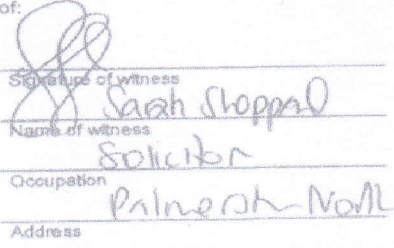 of:
Signature of witness
Sarah Sheppard
Name of witness
Solicitor
Occupation
Palmerston North
Address